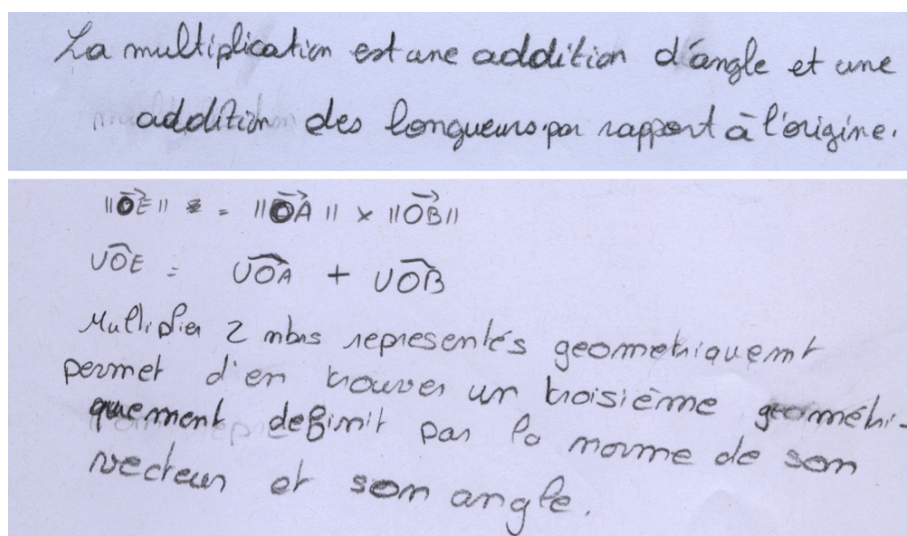 La multiplication est une addition d'angle et une
addition des longueurs par rapport à l'origine.
||OE|| = ||OA|| × ||OB||
UOE = UOA + UOB
Multiplier 2 mbrs representés geometriquemt
permet d'en trouver un troisième géométri-
quement definit par la norme de son
vecteur et son angle.